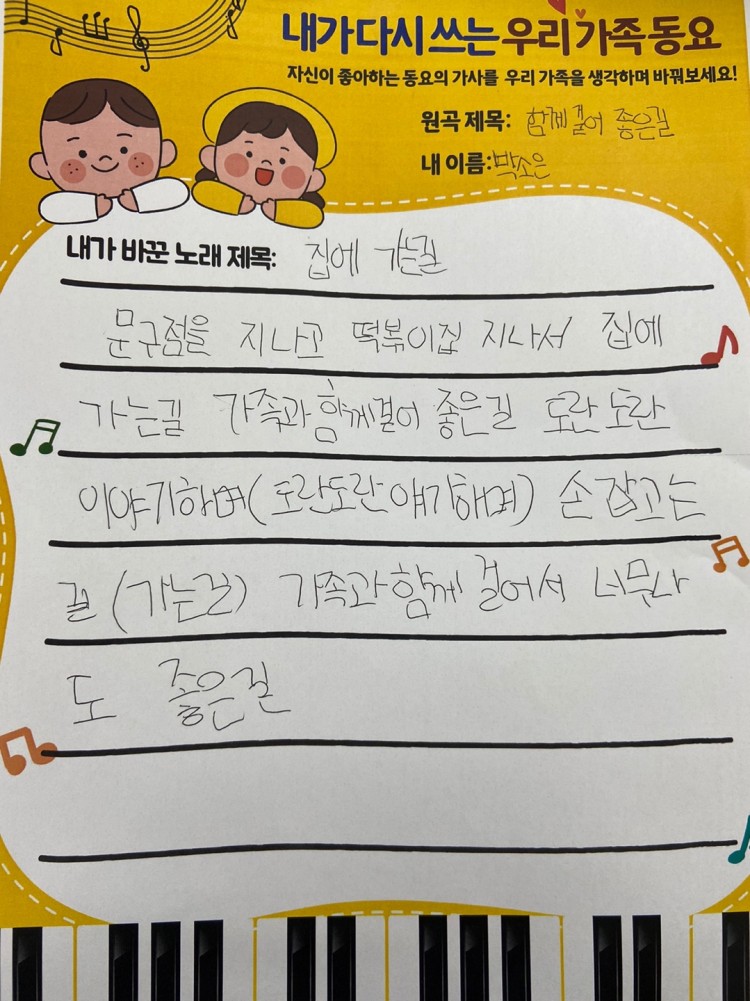 내가 다시 쓰는 우리 가족 동요
자신이 좋아하는 동요의 가사를 우리 가족을 생각하며 바꿔보세요!
원곡 제목: 함께 걸어 좋은길
내 이름: 박소은
내가 바꾼 노래 제목: 집에 가는길
문구점을 지나고 떡볶이집 지나서 집에
가는길 가족과 함께걸어 좋은길 도란도란
이야기하며(도란도란 얘기하며) 손잡고는
길 (가는길) 가족과 함께 걸어서 너무나
도 좋은길